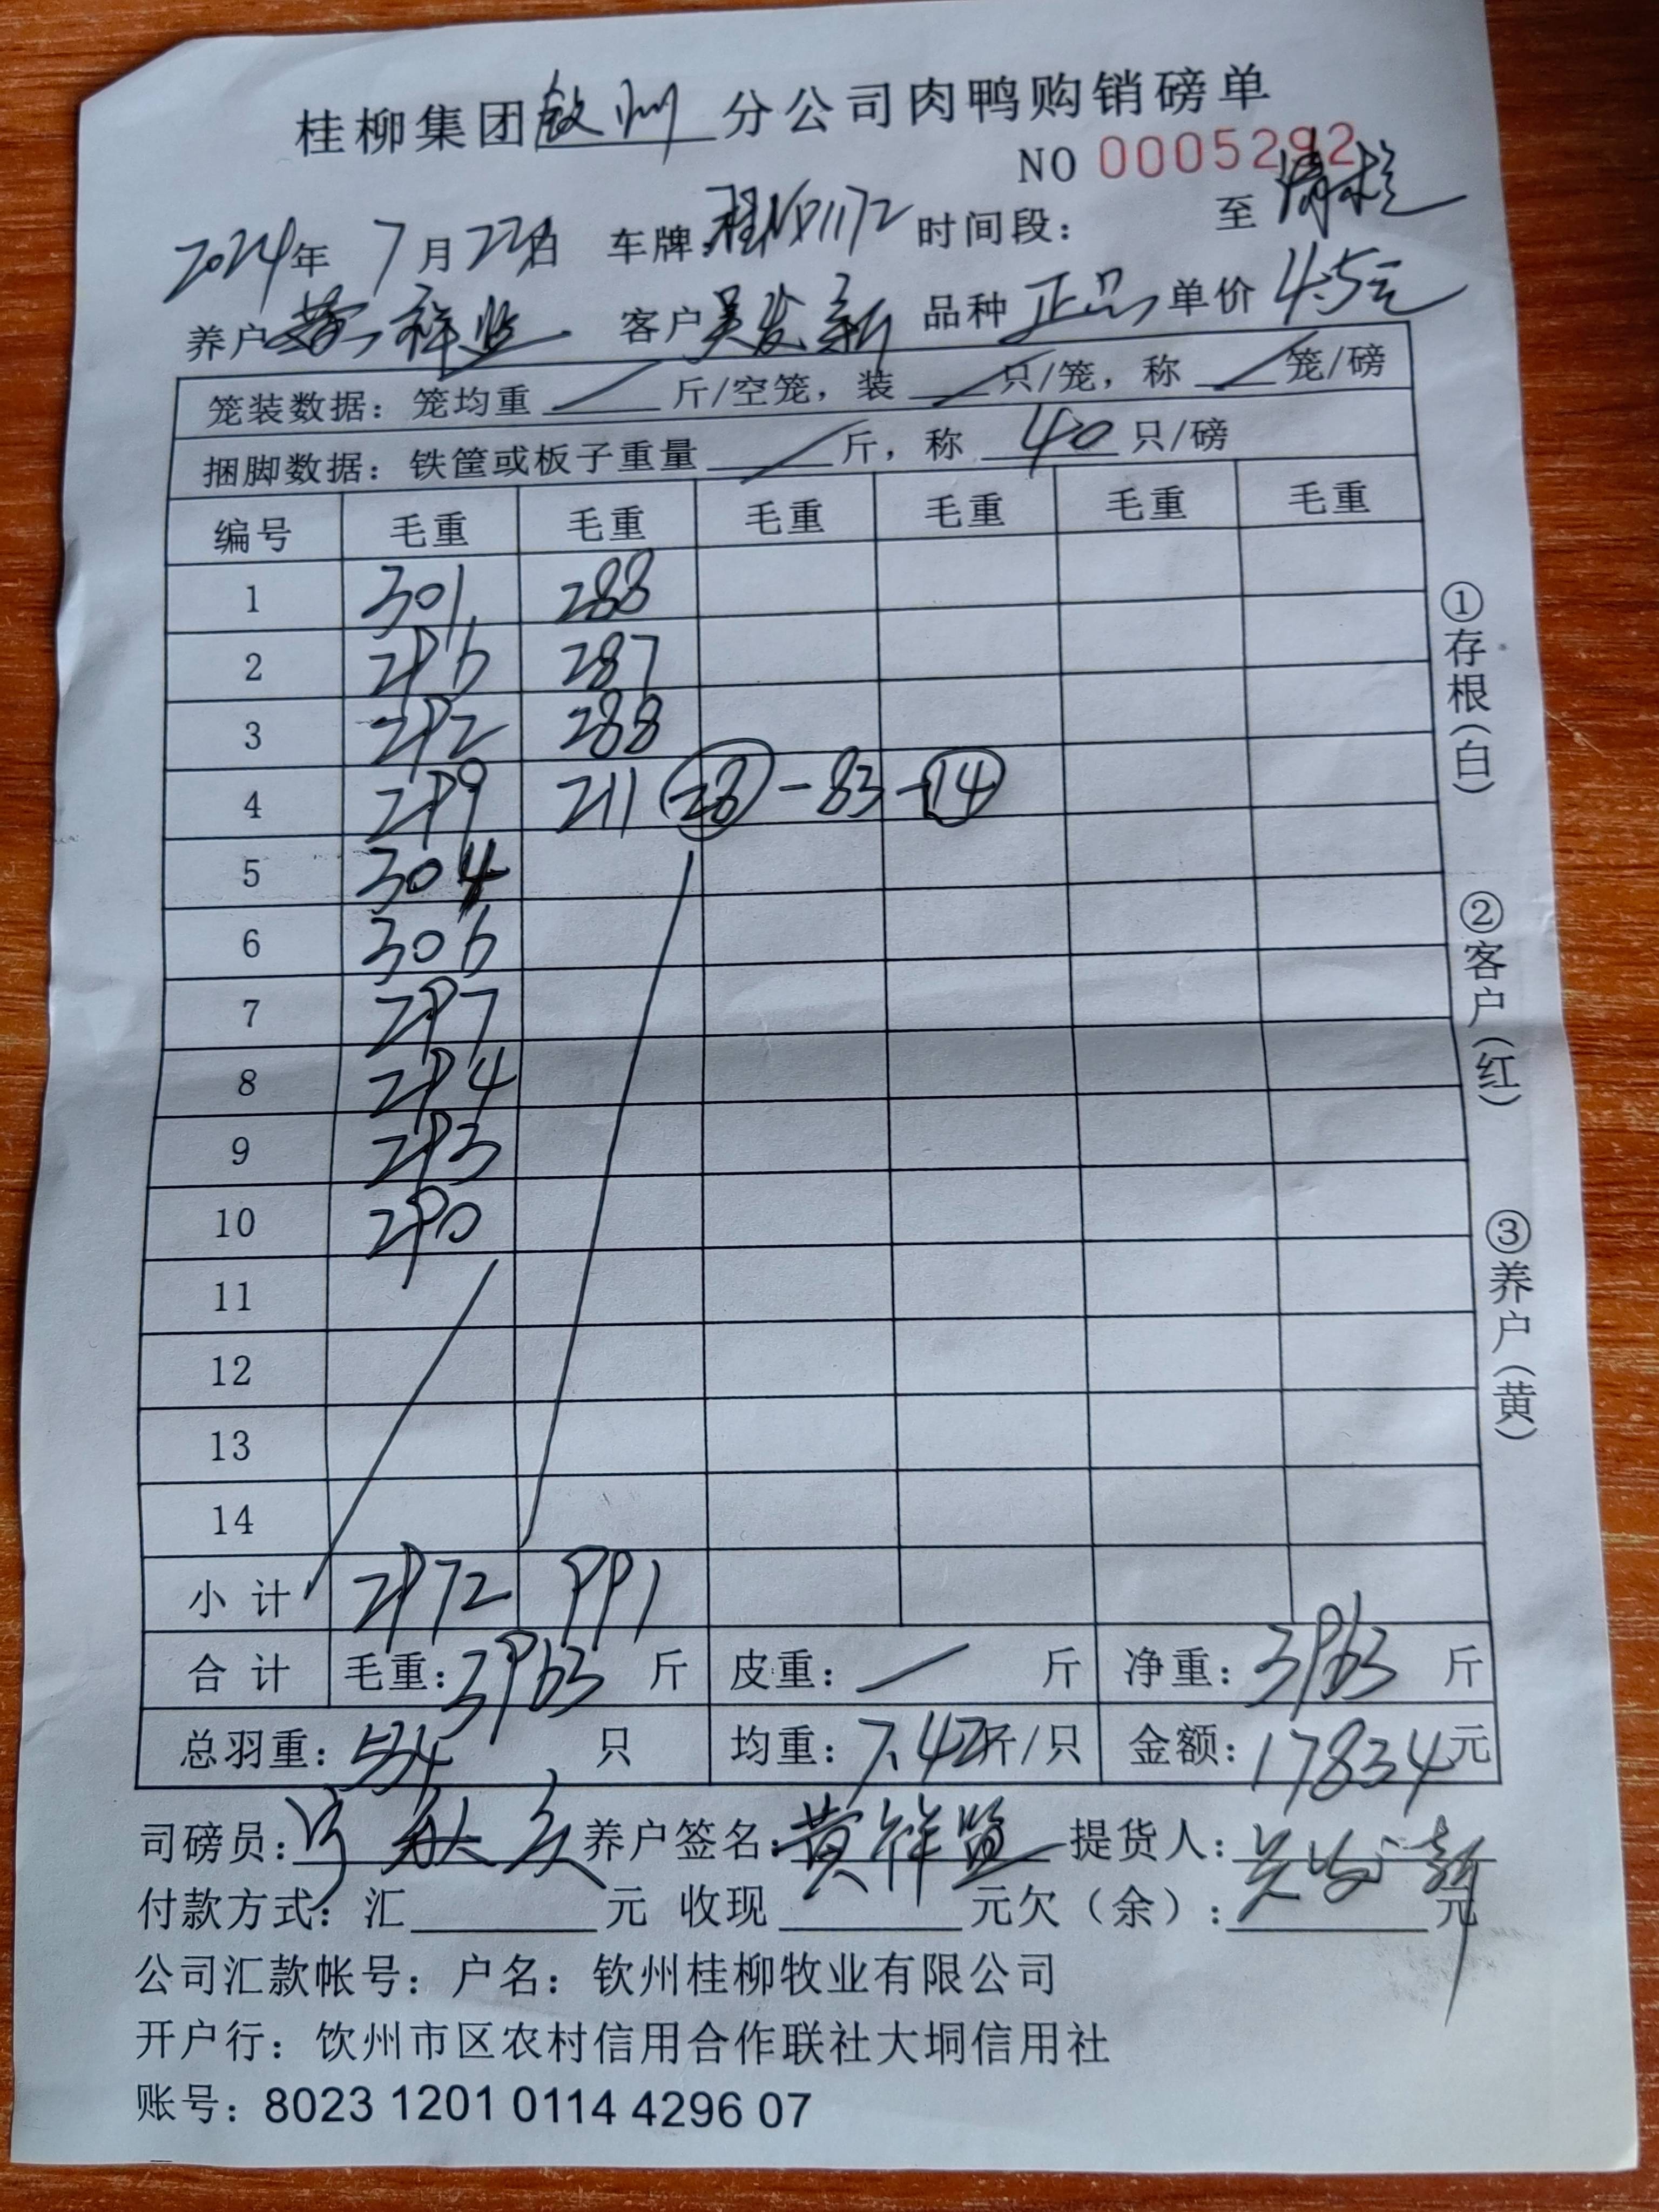 桂柳集团钦州分公司肉鸭购销磅单
NO 0005292
2024年 7月22日 车牌: 时间段: 至
养户 黄祥 客户 吴发新 品种 正品 单价 4.5元
笼装数据: 笼均重 / 斤/空笼, 装 / 只/笼, 称 / 笼/磅
捆脚数据: 铁筐或板子重量 / 斤, 称 40 只/磅
编号 毛重 毛重 毛重 毛重 毛重 毛重
1 301 288
2 296 287
3 292 288
4 299 211 (28) - 83 - (14)
5 304
6 306
7 297
8 294
9 293
10 290
11
12
13
14
小计 2972 991
合计 毛重: 3963 斤 皮重: / 斤 净重: 3963 斤
总羽重: 534 只 均重: 7.42斤/只 金额: 17834元
司磅员: 养户签名: 黄祥 提货人: 吴发新
付款方式: 汇 元 收现 元欠(余): 元
公司汇款帐号: 户名: 钦州桂柳牧业有限公司
开户行: 饮州市区农村信用合作联社大垌信用社
账号: 8023 1201 0114 4296 07
①存根(白)
②客户(红)
③养户(黄)